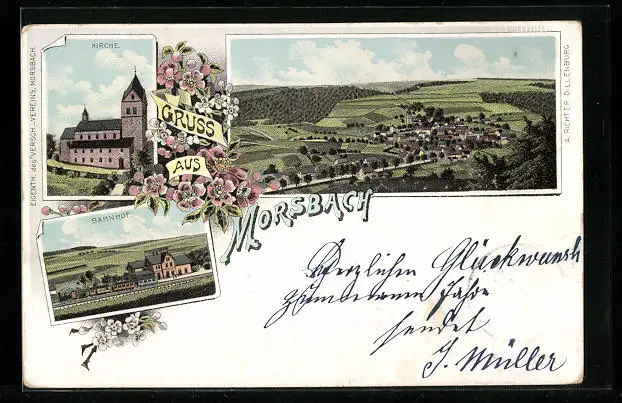 KIRCHE.
GRUSS
AUS
MORSBACH
BAHNHOF
EIGENTH. des VERSCH.-VEREINS, MORSBACH.
A. RICHTER DILLENBURG
Herzlichen Glückwunsch
zum neuen Jahre
sendet
J. Müller